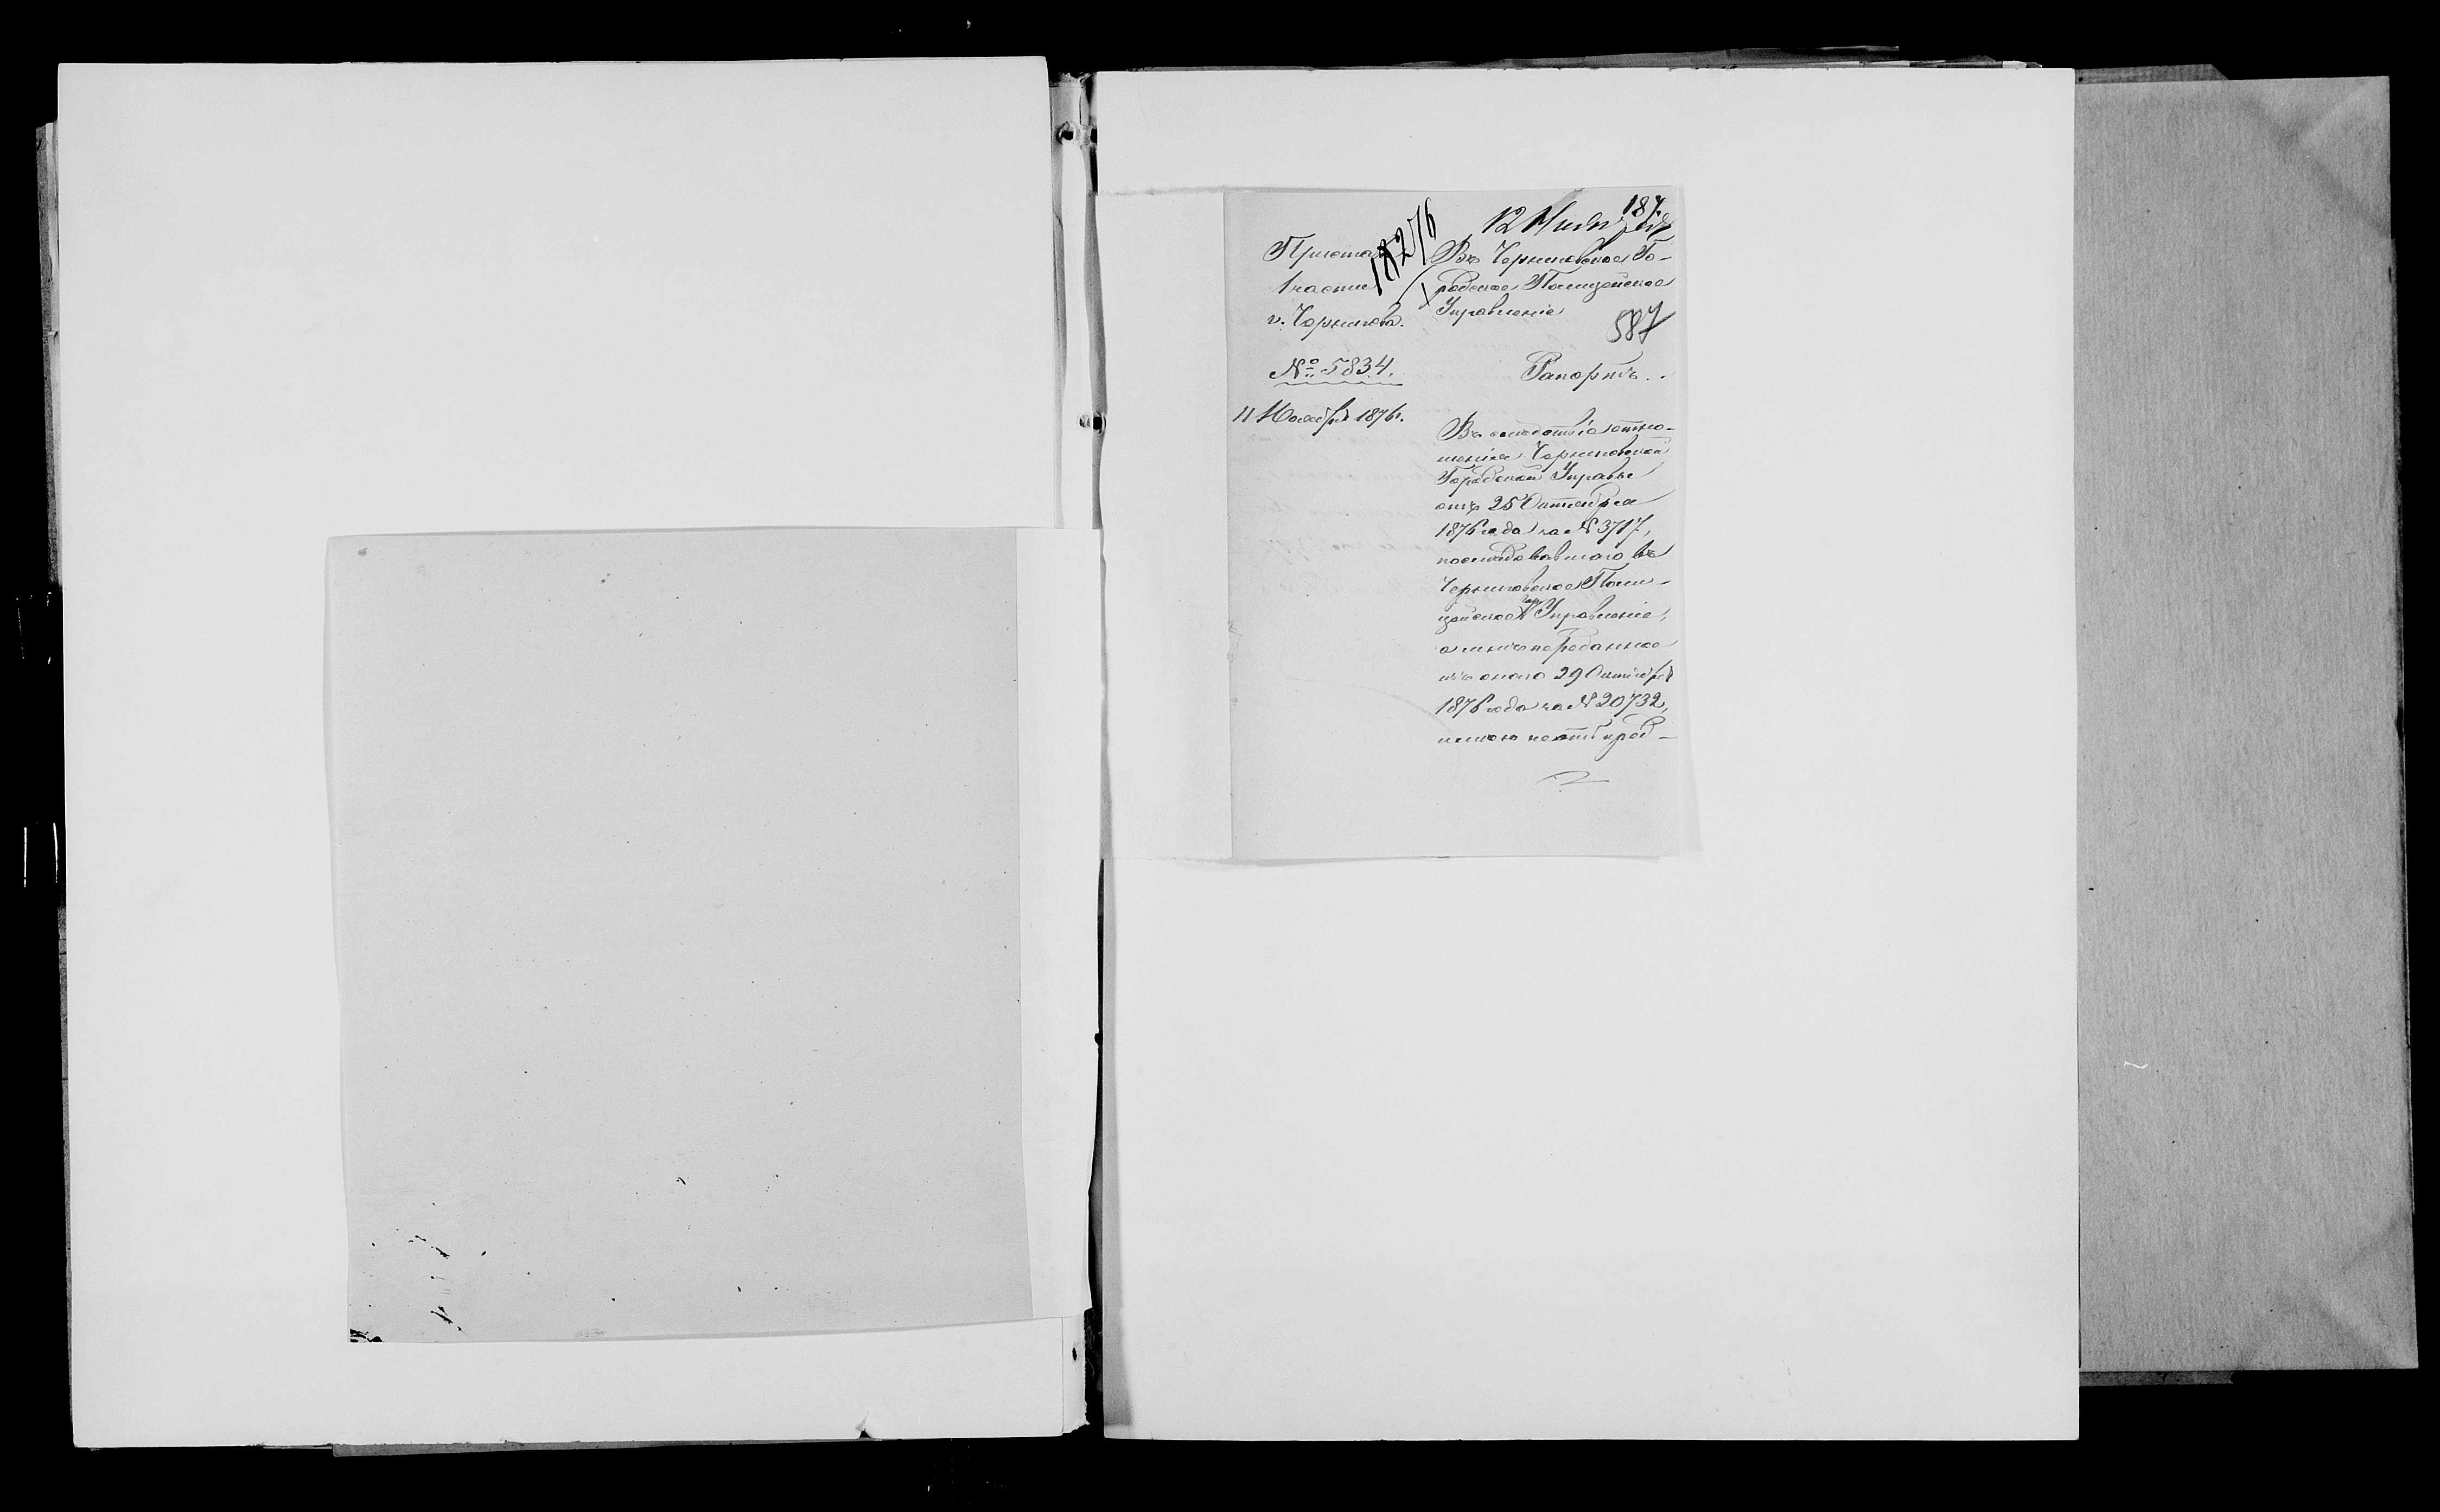 187
12 Ноября
18276
Приставъ
1 части
г. Чернигова.
№ 5834.
11 Ноября 1876 г.
Въ Черниговское Го-
родское Полицейское
Управленіе
587
Рапортъ.
Въ слѣдствіе отно-
шенія Черниговской
Городской Управы
отъ 25 Октября
1876 года за № 3717,
послѣдовавшаго въ
Черниговское Поли-
цейское Гор. Управленіе,
а мнѣ переданное
изъ онаго 29 Октября
1876 года за № 20732,
мною